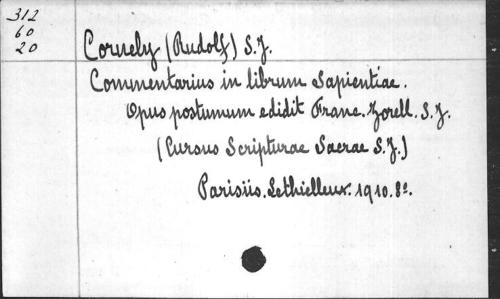 312
60
20
Cornely (Rudolf) S.J.
Commentarius in librum Sapientiae.
Opus postumum edidit Franc. Zorell. S.J.
(Cursus Scripturae Sacrae S.J.)
Parisiis. Lethielleux. 1910. 8º.